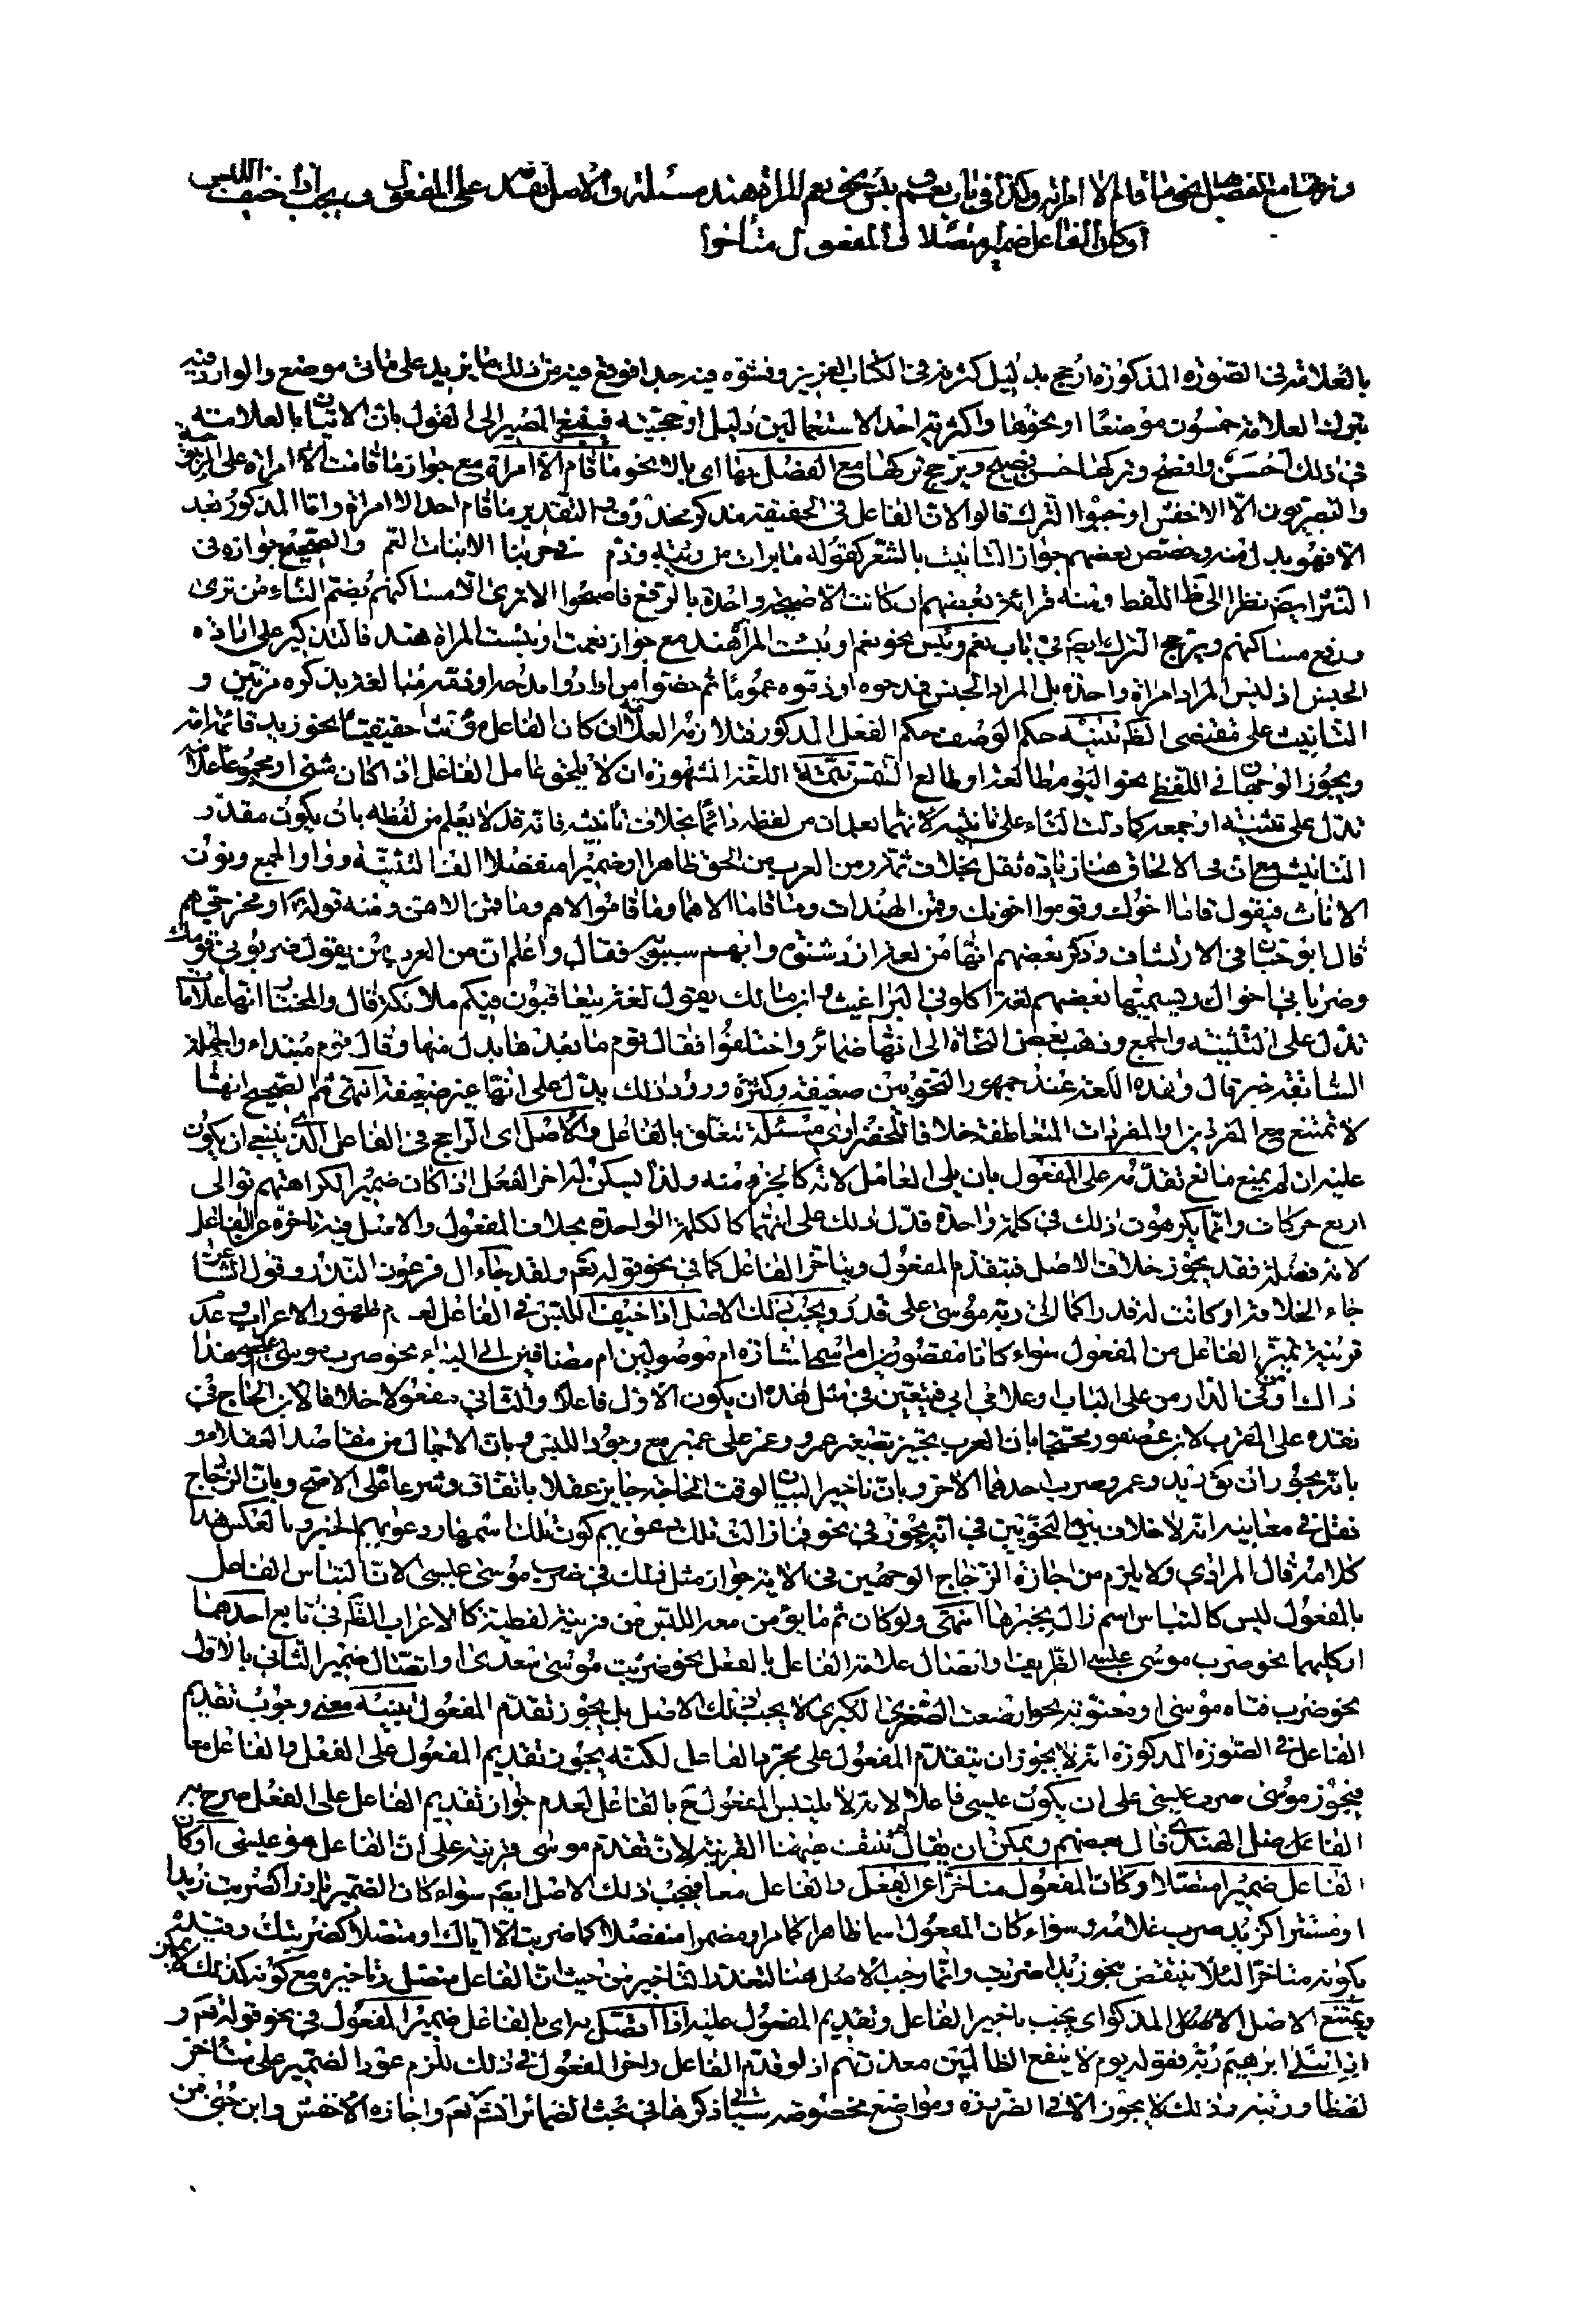 وتركها مع الفصل نحو ما قام الا امراة وكذا في باب نعم وبئس نحو نعم المراة هند مسئلة والاصل تقدمه على المفعول ويجب اذا خيف اللبس
او كان الفاعل ضميرا متصلا والمفعول متأخرا
بالعلامة في الصورة المذكورة ارجح بدليل كثرته في الكتاب العزيز وفشوه فيه جدا فوقع فيه من ذلك ما يزيد على مأتي موضع والوارد فيه
بترك العلامة خمسون موضعا او نحوها واكثرية احد الاستعمالين دليل ارجحيته فينبغي المصير الى القول بان الاتيان بالعلامة
في ذلك احسن وافصح وتركها حسن فصيح ويترجح تركها مع الفصل بها اى بالا نحو ما قام الا امراة مع جواز ما قامت الا امراة على المرجوحية
والبصريون الا الاخفش اوجبوا الترك قالوا لان الفاعل في الحقيقة مذكر محذوف التقدير ما قام احد الا امراة واما المذكور بعد
الا فهو بدل منه وخصص بعضهم جواز التأنيث بالشعر كقوله ما برئت من ريبة وذم في حربنا الا بنات العم والصحيح جوازه في
النثر ايضا نظرا الى ظ اللفظ ومنه قرائة بعضهم ان كانت الا صيحة واحدة بالرفع فاصبحوا لا ترى الا مساكنهم بضم التاء من ترى
ورفع مساكنهم ويترجح الترك ايضا في باب نعم وبئس نحو نعم او بئس المراة هند مع جواز نعمت او بئست المراة هند فالتذكير على ارادة
الجنس اذ ليس المراد امراة واحدة بل المراد الجنس فمدحوه او ذموه عموما ثم خصوا من ارادوا مدحه او ذمه مبالغة بذكره مرتين و
التانيث على مقتضى الظ تنبيه حكم الوصف حكم الفعل المذكور فتلازمه العلامة ان كان الفاعل مؤنث حقيقيا نحو زيد قائمة امه
ويجوز الوجهان في اللفظي نحو اليوم طالعة او طالع الشمس تتمة اللغة المشهورة ان لا يلحق عامل الفاعل اذا كان مثنى او مجموعا علامة
تدل على تثنيته او جمعه كما دلت التاء على تانيثه لانهما يعلمان من لفظه دائما بخلاف تانيثه فانه قد لا يعلم من لفظه بان يكون مقدر
التانيث مع ان في الالحاق هنا زيادة ثقل بخلاف ثم ومن العرب من الحق ظاهرا او ضميرا منفصلا الف التثنية وواو الجمع ونون
الاناث فيقول قاما اخواك وقوموا اخوتك وقمن الهندات وما قاما الا هما وما قاموا الا هم وما قمن الا هن ومنه قوله او مخرجي هم
قال ابو حيان في الارتشاف وذكر بعضهم انها من لغة ازد شنؤة وابهم سيبويه فقال واعلم ان من العرب من يقول ضربوني قومك
وضرباني اخواك ويسميها بعضهم لغة اكلوني البراغيث وابن مالك يقول لغة يتعاقبون فيكم ملائكة قال والمختار انها علامات
تدل على التثنية والجمع وذهب بعض النحاة الى انها ضمائر واختلفوا فقال قوم ما بعدها بدل منها وقال قوم مبتداء والجملة
السابقة خبر قال وهذه اللغة عند جمهور النحويين ضعيفة وكثرة ورود ذلك يدل على انها غير ضعيفة انتهى ثم الصحيح انها
لا تمتنع مع المفردين او المفردات المتعاطفة خلافا للخضراوي مسئلة تتعلق بالفاعل والاصل اى الراجح في الفاعل الذي ينبغي ان يكون
عليه ان لم يمنع مانع تقدمه على المفعول بان يلى العامل لانه كالجزء منه ولذا يسكن له اخر الفعل اذا كان ضميرا لكراهتهم توالى
اربع حركات وانما يكرهون ذلك في كلمة واحدة فدل ذلك على انهما كالكلمة الواحدة بخلاف المفعول والاصل فيه تاخره عن الفاعل
لانه فضلة فقد يجوز خلاف الاصل فيتقدم المفعول ويتاخر الفاعل كما في نحو قوله تعم ولقد جاء ال فرعون النذر وقول الشاعر
جاء الخلافة او كانت له قدرا كما اتى ربه موسى على قدر ويجب ذلك الاصل اذا خيف اللبس في الفاعل لعدم ظهور الاعراب وعدم
قرينة تميز الفاعل من المفعول سواء كانا مقصورين ام اسمي اشارة ام موصولين ام مضافين الى الياء نحو ضرب موسى عيسى وهذا
ذاك او من في الدار من على الباب او غلامي ابي فيتعين في مثل هذه ان يكون الاول فاعلا والثاني مفعولا خلافا لابن الحاج في
نقده على المقرب لابن عصفور محتجا بان العرب تجيز تصغير عمرو وعمر على عمير مع وجود اللبس وبان الاجمال من مقاصد العقلاء و
بانه يجوز ان يق زيد وعمرو ضرب احدهما الاخر وبان تاخير البيان لوقت الحاجة جايز عقلا باتفاق وشرعا على الاصح وبان الزجاج
نقل في معانيه انه لا خلاف بين النحويين في انه يجوز في نحو فما زالت تلك دعويهم كون تلك اسمها ودعويهم الخبر وبالعكس هذا
كلامه قال المرادي ولا يلزم من اجازة الزجاج الوجهين في الاية جواز مثل ذلك في ضرب موسى عيسى لان التباس الفاعل
بالمفعول ليس كالتباس اسم زال بخبرها انتهى ولو كان ثم ما يؤمن معه اللبس من قرينة لفظية كالاعراب الظ في تابع احدهما
او كليهما نحو ضرب موسى عيسى الظريف واتصال علامة الفاعل بالفعل نحو ضربت موسى سعدى او اتصال ضمير الثاني بالاول
نحو ضرب فتاه موسى او معنوية نحو ارضعت الصغرى الكبرى لا يجب ذلك الاصل بل يجوز تقدم المفعول تنبيه معنى وجوب تقديم
الفاعل في الصورة المذكورة انه لا يجوز ان يتقدم المفعول على مجرد الفاعل لكنه يجوز تقديم المفعول على الفعل والفاعل معا
فيجوز موسى ضرب عيسى على ان يكون عيسى فاعلا لانه لا يلتبس المفعول ح بالفاعل لعدم جواز تقديم الفاعل على الفعل صرح به
الفاضل الهندي قال بعضهم ويمكن ان يقال لم تنتف هيهنا القرينة لان تقدم موسى قرينة على ان الفاعل هو عيسى او كان
الفاعل ضميرا متصلا وكان المفعول متاخرا عن الفعل والفاعل معا فيجب ذلك الاصل ايضا سواء كان الضمير بارزا كضربت زيدا
او مستترا كزيد ضرب غلامه وسواء كان المفعول اسما ظاهرا كما مر او مضمرا منفصلا كما ضربت الا اياك او متصلا كضربتك وقيد
بكونه متاخرا لئلا ينتقض بنحو زيدا ضربت وانما وجب الاصل هنا لتعذر التاخير من حيث ان الفاعل متصل وتاخيره مع كونه كذلك لا يمكن
ويمتنع الاصل المذكور اى يجب تاخير الفاعل وتقديم المفعول عليه اذا اتصل به اى بالفاعل ضمير المفعول في نحو قوله تعم و
اذ ابتلى ابرهيم ربه وقوله يوم لا ينفع الظالمين معذرتهم اذ لو قدم الفاعل واخر المفعول في ذلك للزم عود الضمير على متاخر
لفظا ورتبة وذلك لا يجوز الا في الضرورة ومواضع مخصوصة سياتي ذكرها في بحث الضمائر انشم تعم واجازه الاخفش وابن جني من